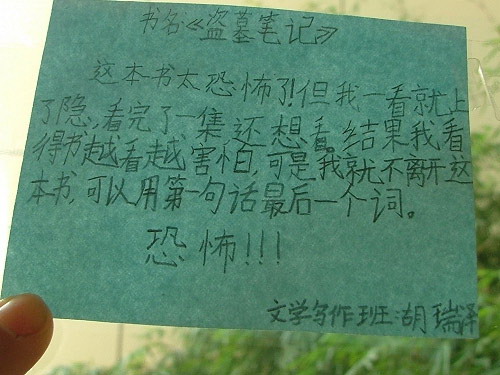 书名《盗墓笔记》
这本书太恐怖了!但我一看就上
了隐,看完了一集还想看。结果我看
得书越看越害怕,可是我就不离开这
本书,可以用第一句话最后一个词。
恐怖!!!
文学写作班:胡瑞泽